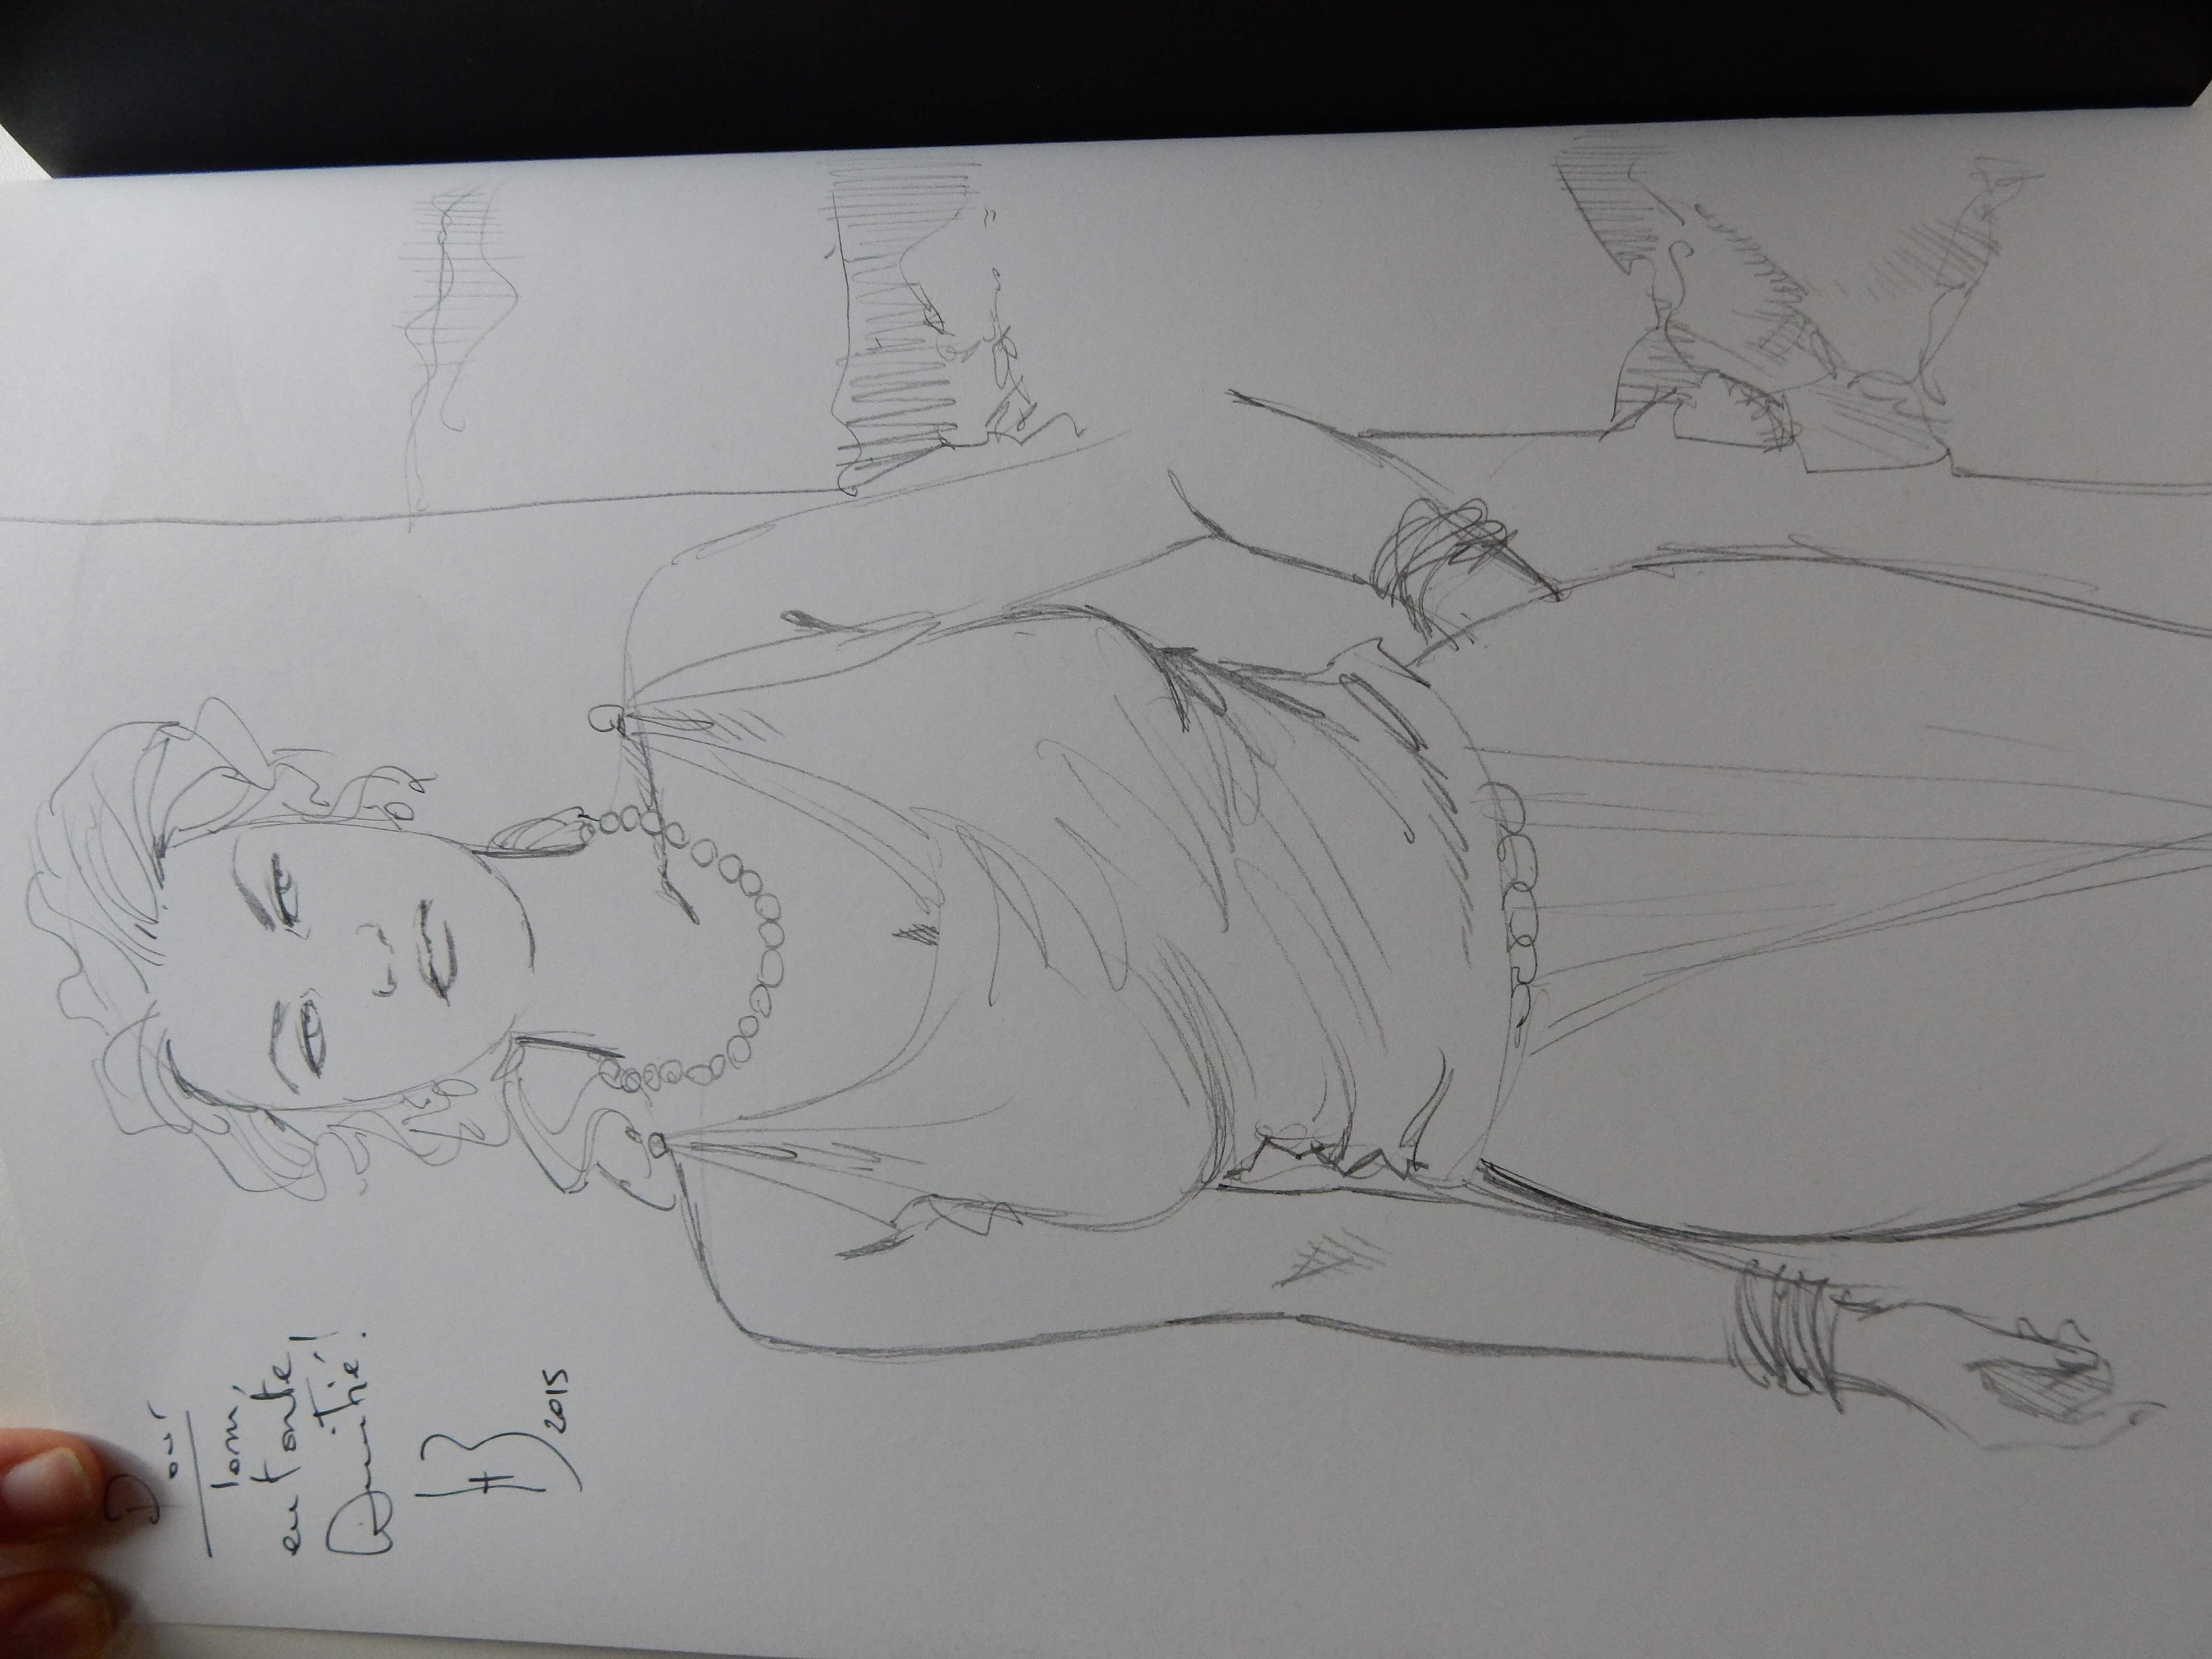 Pour
Tom,
en toute
Amitié!
HB
2015